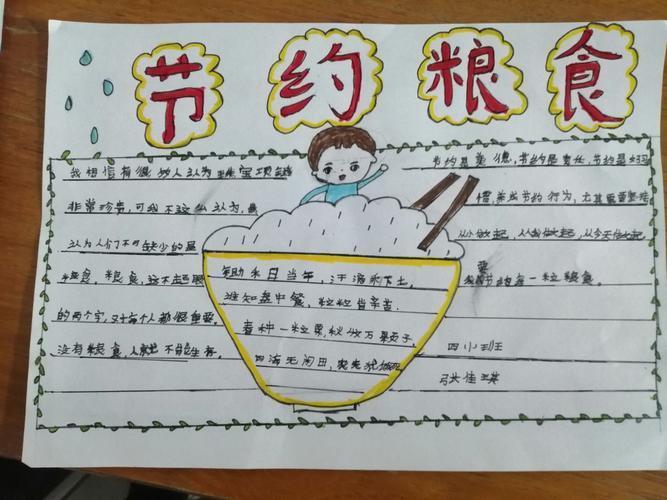 节约粮食
我相信有很多人认为珠宝项链
非常珍贵,可我不这么认为,我
认为人们不可缺少的是
粮食,粮食,这不起眼
的两个字,对每个人都很重要。
没有粮食,人就不能生存。
锄禾日当午,汗滴禾下土,
谁知盘中餐,粒粒皆辛苦。
春种一粒粟,秋收万颗子,
四海无闲田,农夫犹
节约是美德,节约是责任,节约是
惯,养成节约行为,尤其重要
从小做起,从我做起,从今天做起
要
节约每一粒粮食。
四小班
张佳琪